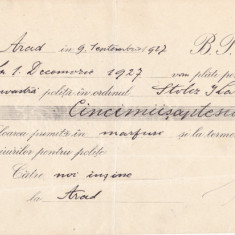 Arad in 9. Septembrie 1927 B. P.
La 1. Decemvrie 1927 vom plăti
poliță în ordinul Stolcz
Cincimiișaptesu
valoarea primită în marfuri și la
pentru poliță
Către noi înșine
la Arad